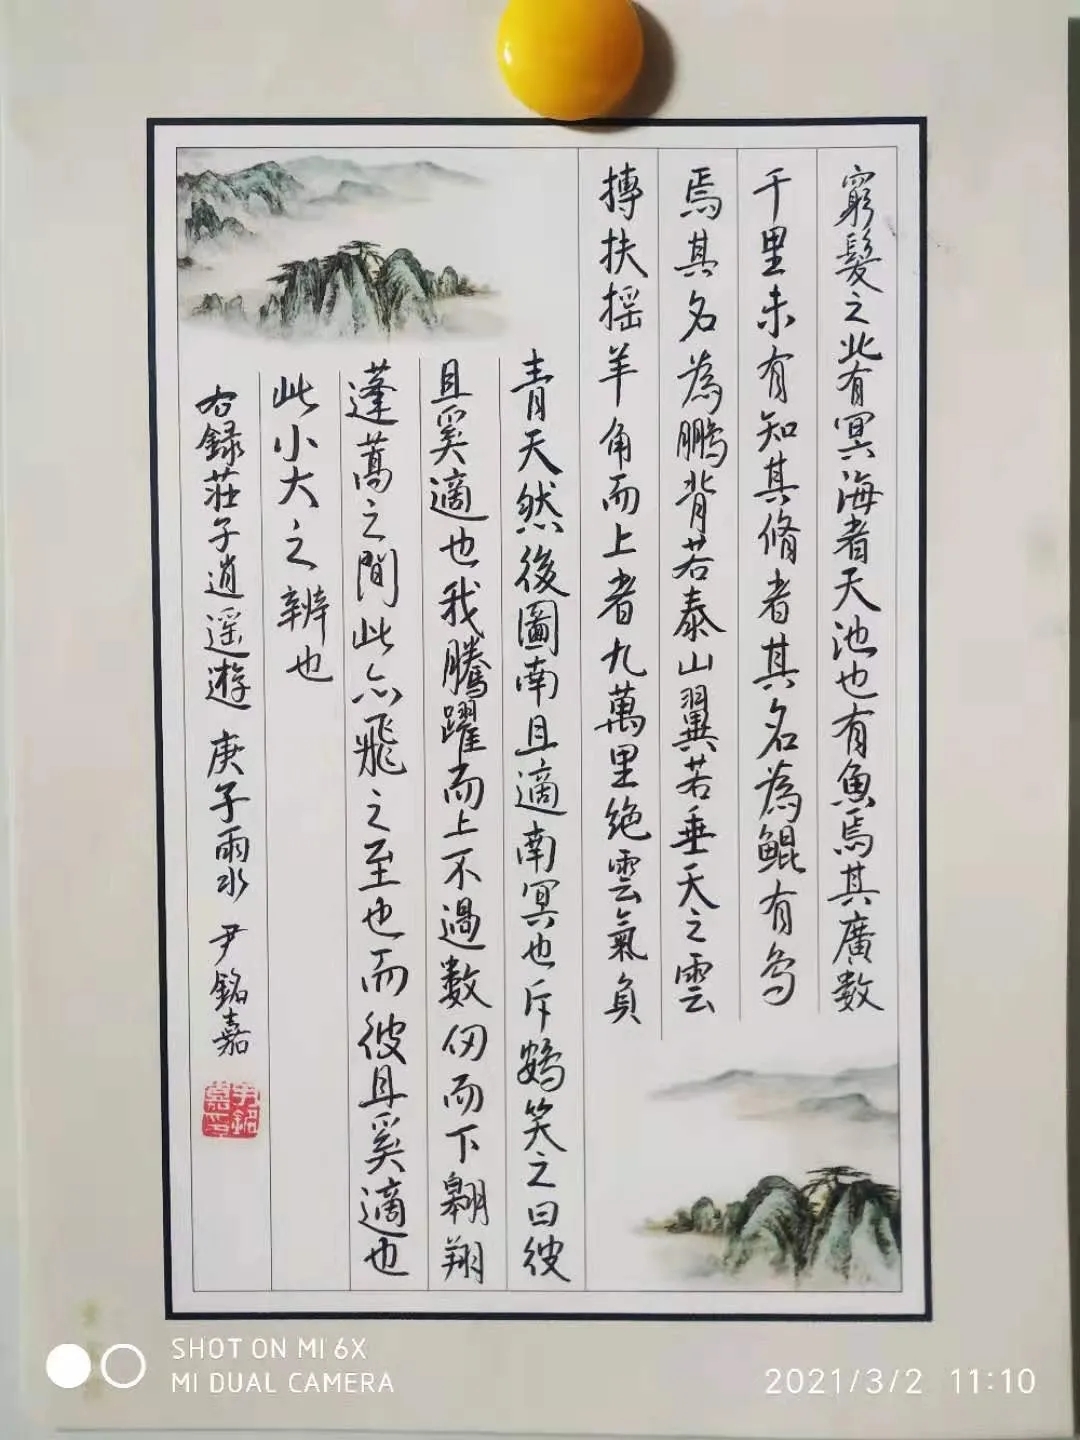 窮髮之北有冥海者天池也有魚焉其廣数
千里未有知其脩者其名為鯤有鸟
焉其名為鵬背若泰山翼若垂天之雲
摶扶摇羊角而上者九萬里绝雲氣負
青天然後圖南且適南冥也斥鴳笑之曰彼
且奚適也我騰躍而上不過数仞而下翱翔
蓬蒿之間此亦飛之至也而彼且奚適也
此小大之辨也
右録莊子逍遥遊 庚子雨水 尹銘嘉
尹銘嘉印
SHOT ON MI 6X
MI DUAL CAMERA
2021/3/2 11:10